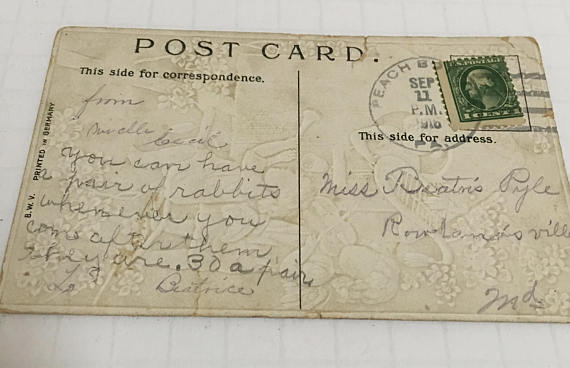 POST CARD.
This side for correspondence.
from
Cecil
you can have
a pair of rabbits
whenever you
come after them
they are. 30 a pair
Beatrice
B.W.V. PRINTED IN GERMANY
PEACH B
SEP
11
P.M.
1916
PA
U.S. POSTAGE
1 CENT 1
This side for address.
Miss Beatris Pyle
Rowlandsville
Md